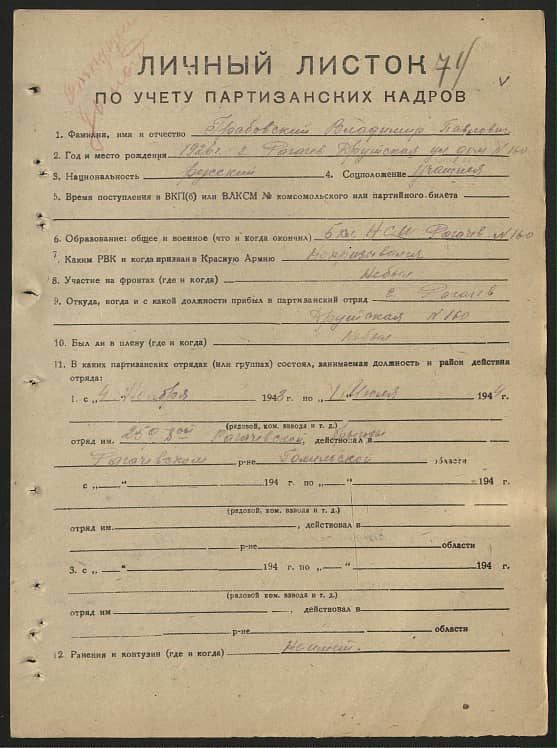 ЛИЧНЫЙ ЛИСТОК 74
ПО УЧЕТУ ПАРТИЗАНСКИХ КАДРОВ
1. Фамилия, имя и отчество Грабовский Владимир Павлович
2. Год и место рождения 1926 г. г Рогачев Друтская ул дом N 160
3. Национальность Русский 4. Соцположение Учащийся
5. Время поступления в ВКП(б) или ВЛКСМ № комсомольского или партийного билета
6. Образование: общее и военное (что и когда окончил) 5 кл. НСШ Рогачев N 160
7. Каким РВК и когда призван в Красную Армию
8. Участие на фронтах (где и когда) Небыл
9. Откуда, когда и с какой должности прибыл в партизанский отряд г. Рогачев
Друтская N 160
10. Был ли в плену (где и когда) Небыл
11. В каких партизанских отрядах (или группах) состоял, занимаемая должность и район действия
отряда:
1. с „4" Ноября 1943 г. по „1" Июля 1944 г.
(рядовой, ком. взвода и т. д.)
отряд им. 259 Рогачевской, действовал в
Рогачевском р-не Гомельской области
с „—" 194 г. по „—" 194 г.
(рядовой, ком. взвода и т. д.)
отряд им. , действовал в
р-не области
3. с „—" 194 г. по „—" 194 г.
(рядовой, ком. взвода и т. д.)
отряд им. , действовал в
р-не области
12. Ранения и контузии (где и когда)